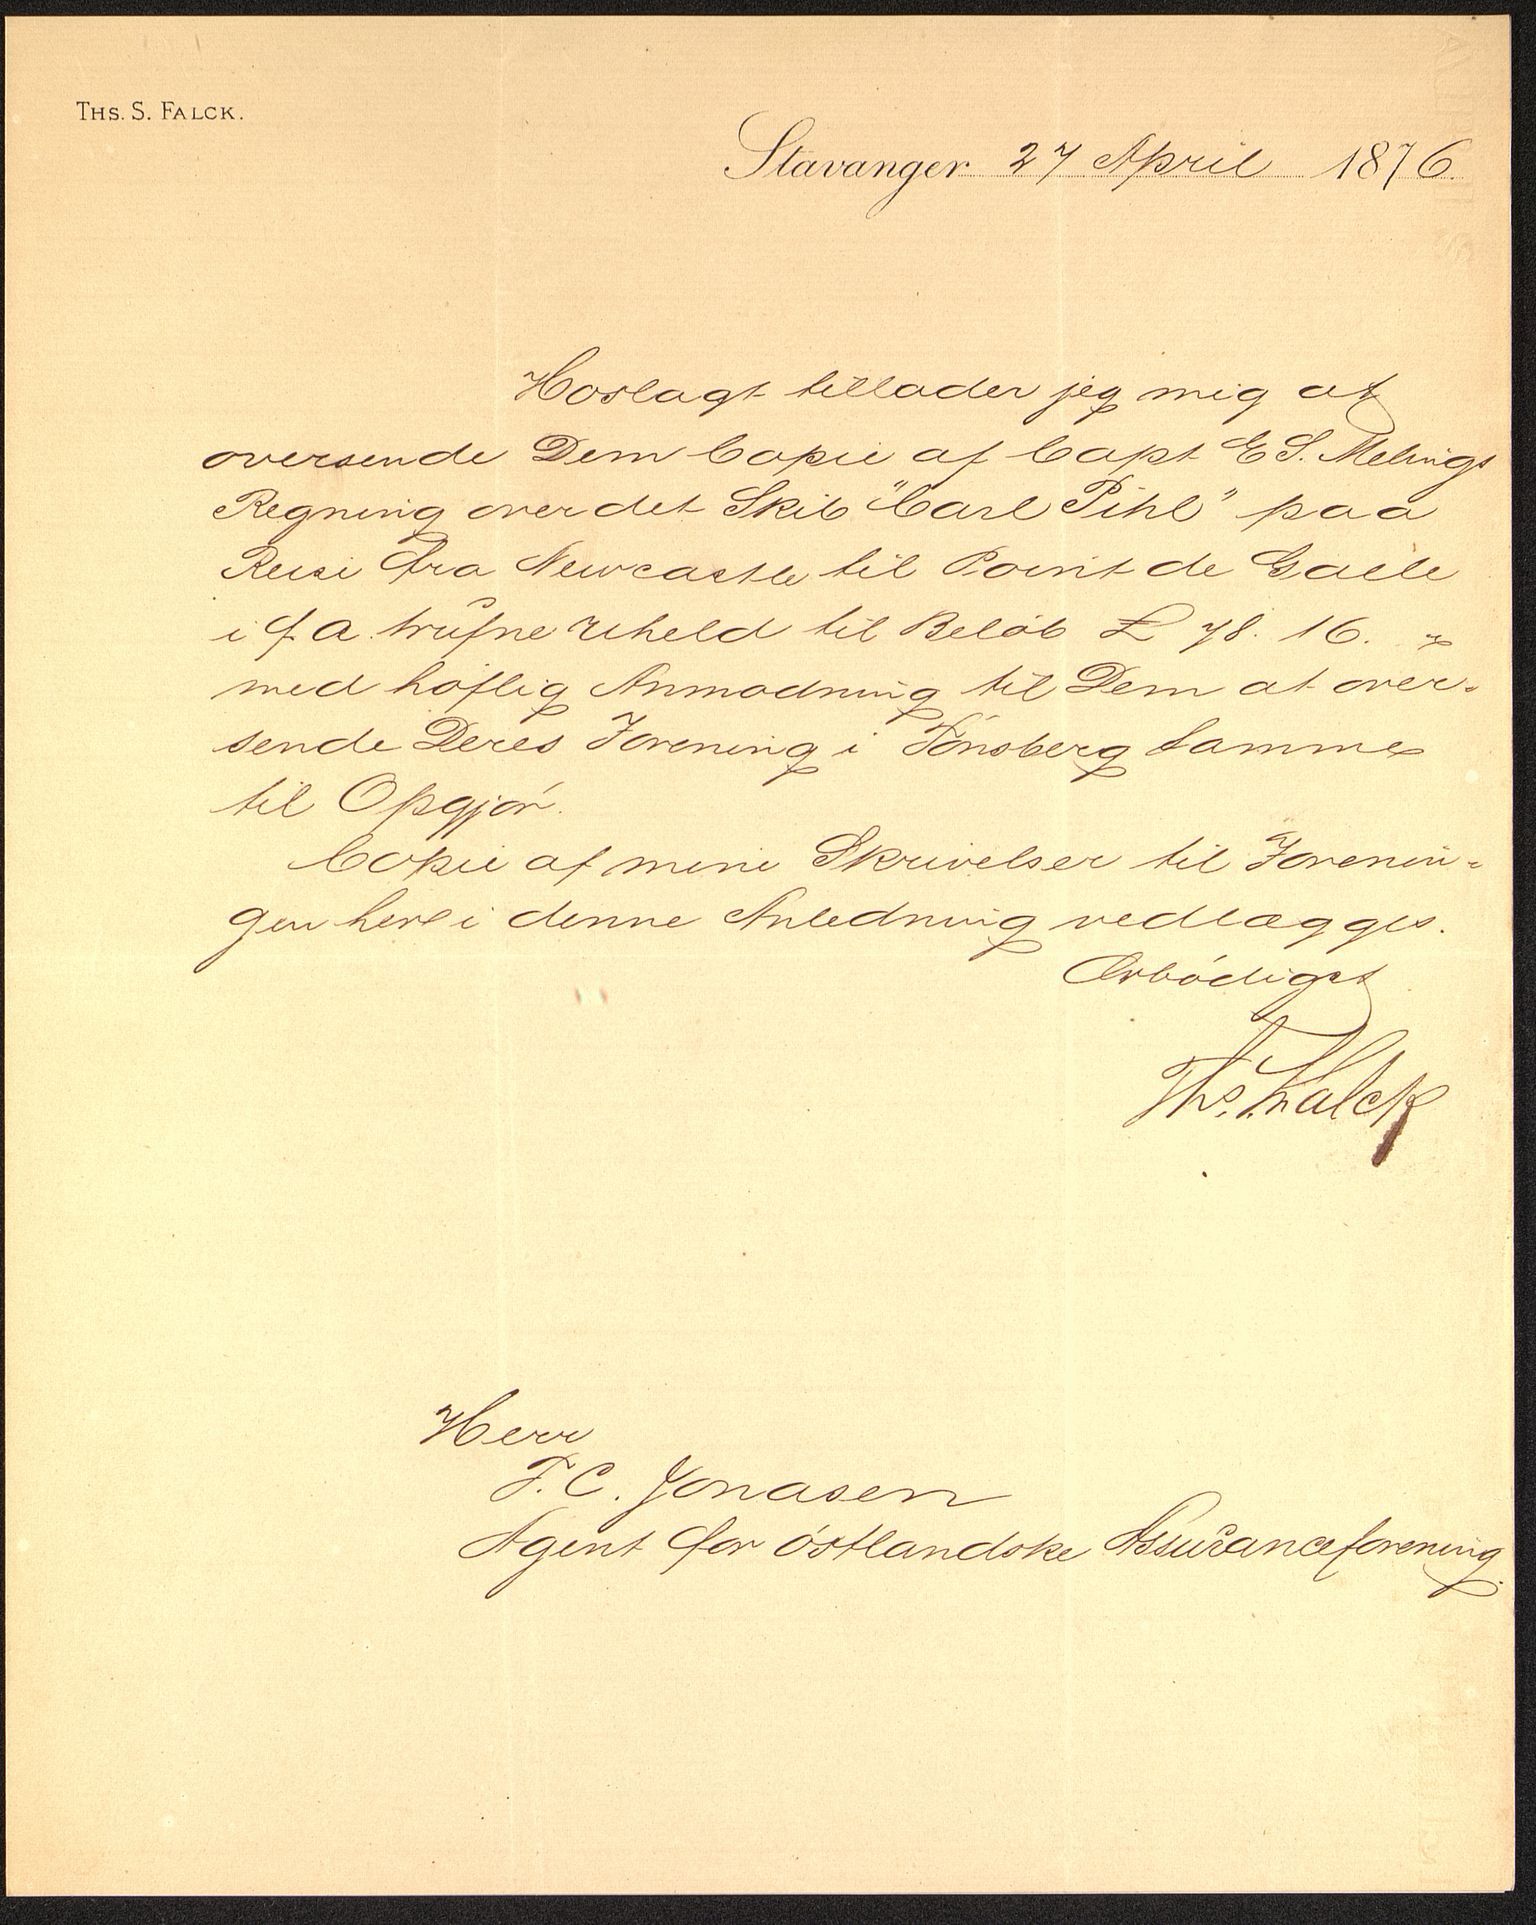 THS. S. FALCK.
Stavanger 27 April 1876.
Hoslagt tillader jeg mig at
oversende Dem Copie af Capt E S. Melings
Regning over det Skib "Carl Pihl" paa
Reise fra Newcastle til Point de Galle
i f A. trufne Uheld til Beløb £ 78. 16.
med høflig Anmodning til Dem at over-
sende Deres Forening i Tønsberg samme
til Opgjør.
Copie af mine Skrivelser til Forenin-
gen her i denne Anledning vedlægges.
Ærbødigst
Ths. S. Falck
Herr
T. C. Jonasen
Agent for østlandske Assuranceforening.